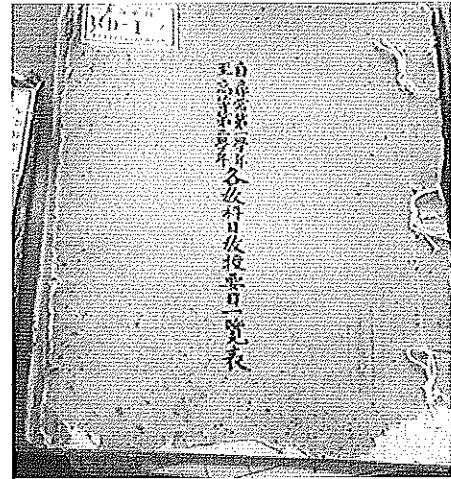 自尋常第一學年
至高等第二學年
各教科目教授要目一覽表